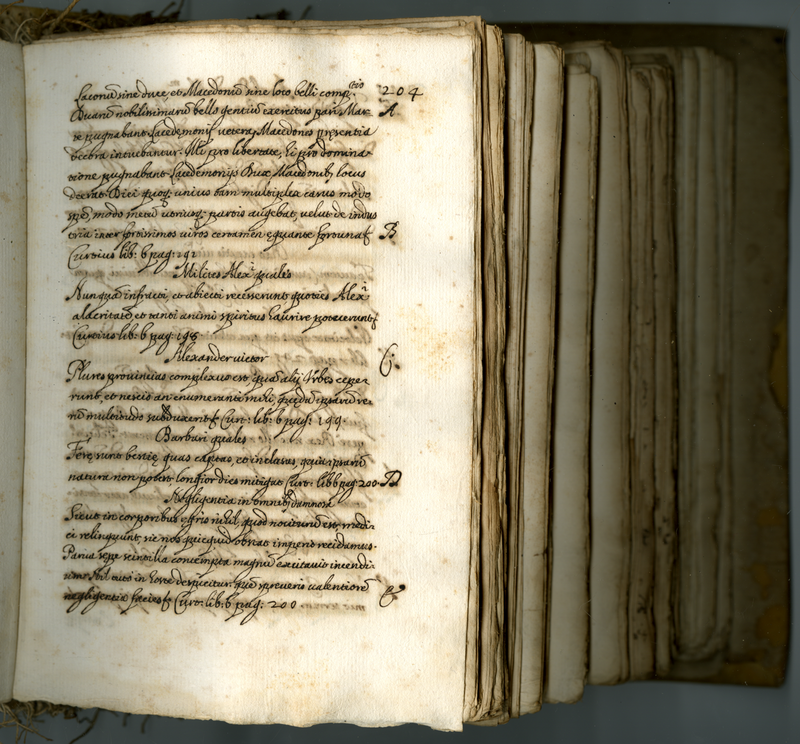 Laconũ sine duce, et Macedonũ sine loco belli comp.
tio
204
Quanũ nobilissimarũ bello gentiũ exercitus pari Mar-
A
te pugnabant. Lacedemonij vetera, Macedones pręsentia
decora intuebantur. Illi pro libertate, hi pro domina-
tione pugnabant. Lacedemonijs Dux Macedonib, locus
deerat. Diei quoq. unius tam multiplex casus modo
spẽ, modo metũ utriusq. partis augebat, velut de indus
tria inter fortissimos viros certamen ęquante fortuna
B
Curtius lib: 6 pag: 192
Milites Alex.i quales
Nunquã infracti, et abiecti recesserunt quoties Alex.i
alacritate, et tanti animi spiritus haurire potuerunt
Curtius lib: 6 pag: 198
Alexander victor
C
Plures provincias complexus est, quã alij Urbes ceper
runt, et nescis an enumeranti mihi, quędã ipsarũ re-
rũ multitudo subduxerit Cur: lib: 6 pag: 199.
Barbari quales
Ferę sunt bestię, quas captas, et inclusas, quia ipsarũ
natura non potest, longior dies mitigat Curt: lib 6 pag: 200
D
Negligentia in omnib, damnosa
Sicut in corporibus ęgris nihil, quod nociturũ est, medi-
ci relinquunt, sic nos quicquid obstat imperio recidamus.
Parva sępe scintilla contempta magnũ excitavit incendi-
um. Nil tuto in hoste despicitur, quẽ spreveris valentiorẽ
negligentia facies Curt: lib: 6 pag: 200
E